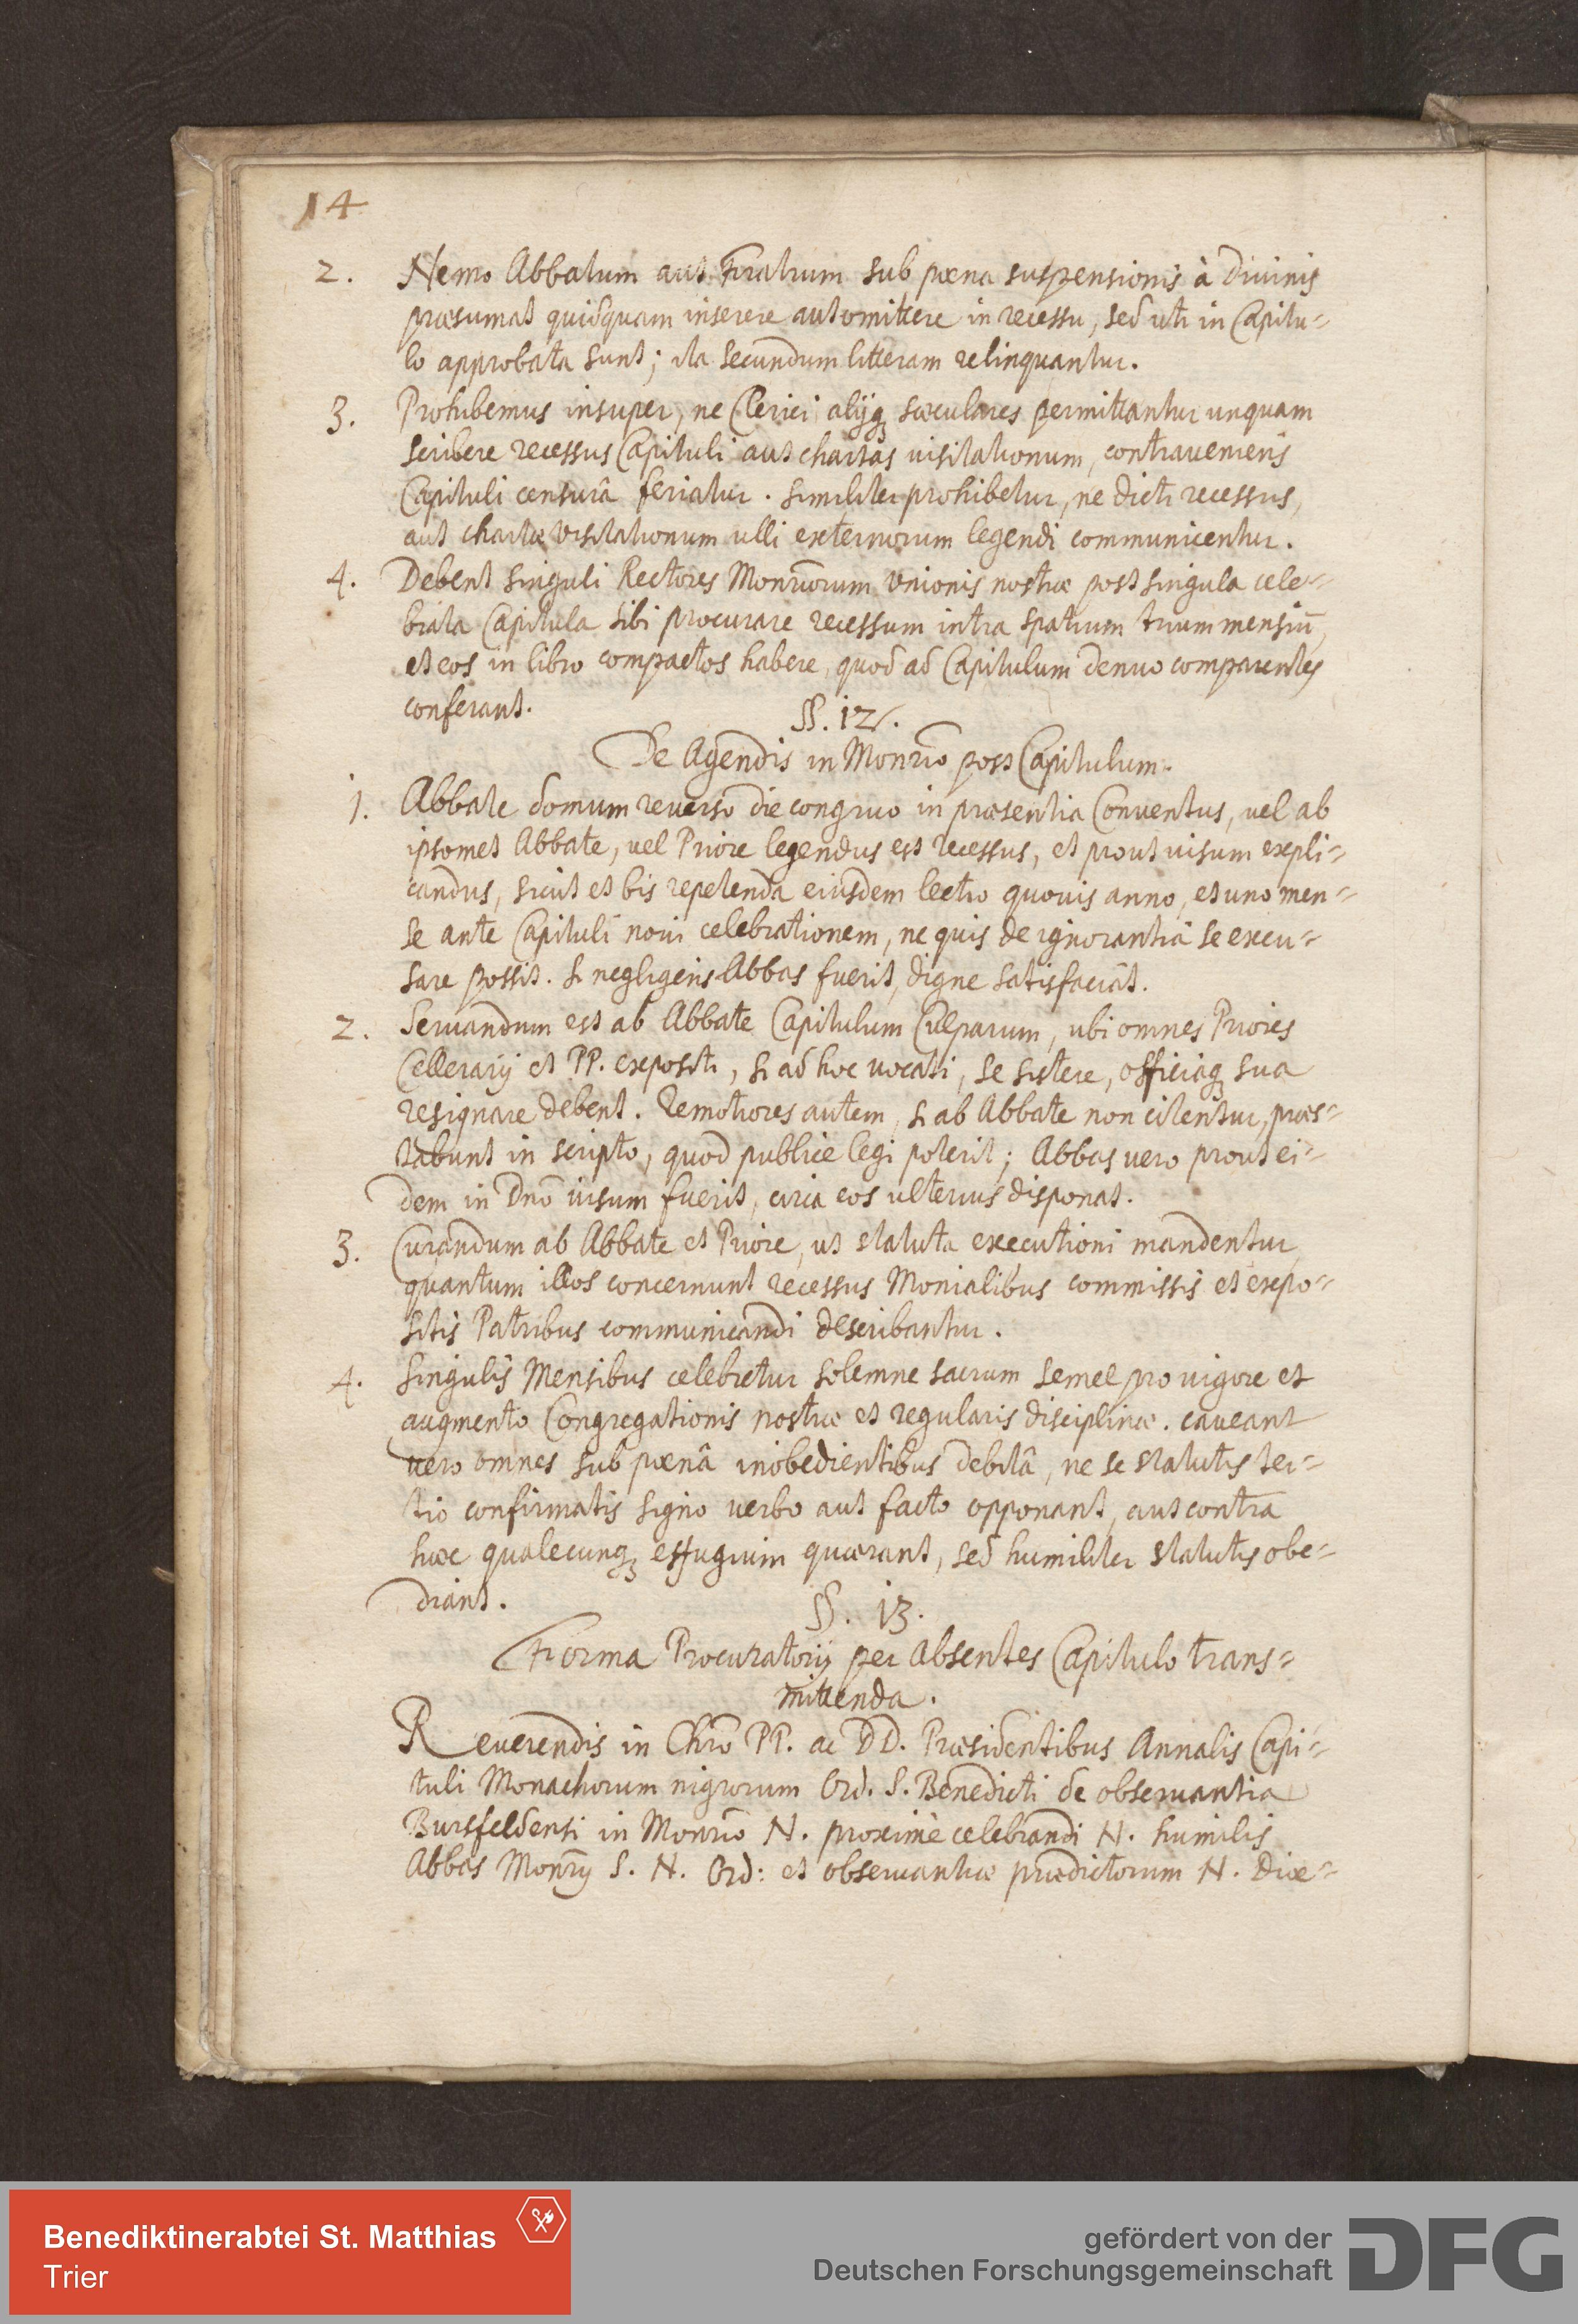 14
2. Nemo Abbatum aut Fratrum sub pœna suspensionis à Divinis
præsumat quidquam inserere aut omittere in recessu, sed uti in Capitu=
lo approbata sunt; ita secundum litteram relinquantur.
3. Prohibemus insuper, ne Clerici alijq sæculares permittantur unquam
scribere recessus Capituli aut chartas visitationum, contraveniens
Capituli censurâ feriatur. Similiter prohibetur, ne dicti recessus,
aut chartæ visitationum ulli externorum legendi communicentur.
4. Debent singuli Rectores Monriorum Unionis nostræ post singula cele=
brata Capitula sibi procurare recessum intra spatium trium mensiū,
et eos in libro compactos habere, quod ad Capitulum denuo comparentes
conferant.
§§. 12.
De Agendis in Monrio post Capitulum.
1. Abbate domum reverso die congruo in præsentia Conventus, vel ab
ipsomet Abbate, vel Priore legendus est recessus, et prout visum expli=
candus, sicut et bis repetenda eiusdem lectio quovis anno, et uno men=
se ante Capituli novi celebrationem, ne quis de ignorantia se excu=
sare possit. Si negligens Abbas fuerit, digne satisfaciat.
2. Servandum est ab Abbate Capitulum Culparum, ubi omnes Priores
Cellerarij et PP. expositi, si ad hoc vocati, se sistere, officiaq sua
resignare debent. Remotiores autem, si ab Abbate non citentur, præs=
tabunt in scripto, quod publice legi poterit; Abbas vero prout ei=
dem in Dno visum fuerit, circa eos ulterius disponat.
3. Curandum ab Abbate et Priore, ut statuta executioni mandentur,
quantum illos concernunt recessus Monialibus commissis et expo=
sitis Patribus communicandi describantur.
4. Singulis Mensibus celebretur solemne sacrum semel pro vigore et
augmento Congregationis nostræ et regularis disciplinæ. caveant
vero omnes sub pœnâ inobedientibus debitâ, ne se statutis ter=
tio confirmatis signo verbo aut facto opponant, aut contra
hæc qualecunq effugium quærant, sed humiliter statutis obe=
diant.
§§. 13.
Forma Procuratorij per Absentes Capitulo trans=
mittenda.
Reverendis in Chro PP. ac DD. Præsidentibus Annalis Capi=
tuli Monachorum nigrorum Ord. S. Benedicti de observantia
Bursfeldensi in Monrio N. proxime celebrandi N. humilis
Abbas Monrij S. N. Ord: et observantiæ prædictorum N. Diœ=
Benediktinerabtei St. Matthias
Trier
gefördert von der
Deutschen Forschungsgemeinschaft
DFG